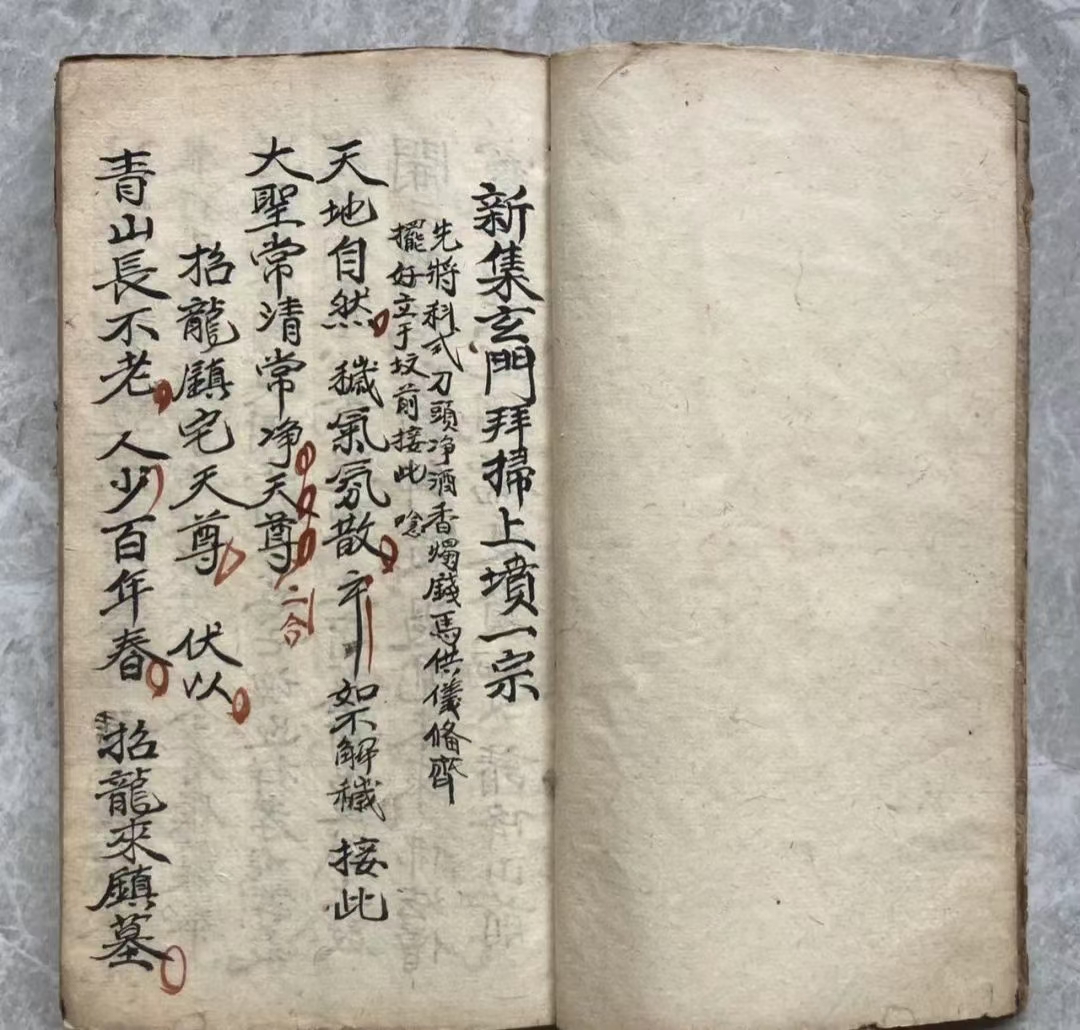 新集玄門拜掃上墳一宗
先將科式刀頭净酒香燭錢馬供儀俻齊
擺好立于坟前接此 唸
天地自然 穢氣氛散 如不解穢 接此
大聖常清常净天尊 二合
招龍鎮宅天尊 伏以
青山長不老 人少百年春 招龍來鎮墓